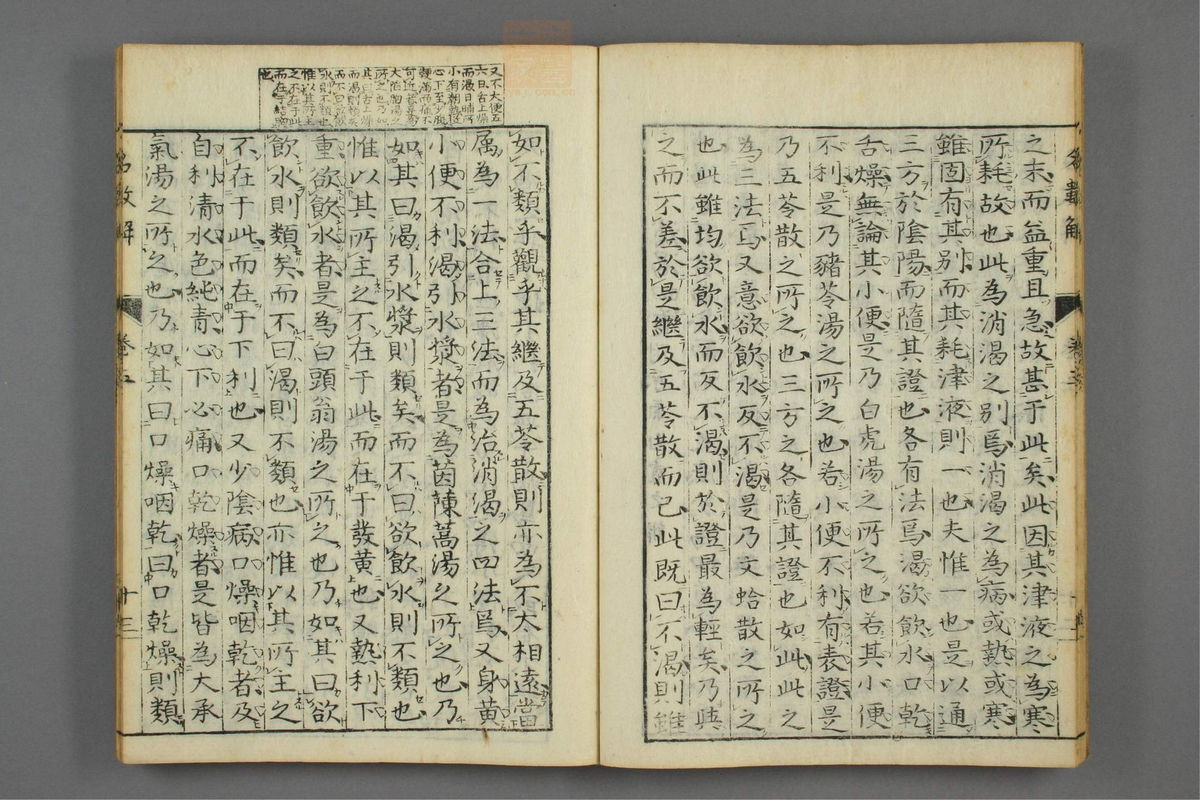 之末而益重且急故甚于此矣此因其津液之為寒
所耗故也此為消渴之別焉消渴之為病或熱或寒
雖固有其別而其耗津液則一也夫惟一也是以通
三方於陰陽而隨其證也各有法焉渴欲飲水口乾
舌燥無論其小便是乃白虎湯之所之也若其小便
不利是乃豬苓湯之所之也若小便不利有表證是
乃五苓散之所之也三方之各隨其證也如此此之
為三法焉又意欲飲水反不渴是乃文蛤散之所之
也此雖均欲飲水而反不渴則於證最為輕矣乃與
之而不差於是繼及五苓散而已此既曰不渴則雖
又不大便五
六日舌上燥
而渴日晡所
小有潮熱從
心下至少腹
鞕滿而痛不
可近者是為
大陷胸湯之
所之也乃如
其曰舌上燥
而渴則類矣
而不曰欲飲
水則不類也
惟以其所主
之不在于此
而在于結胸
也
如不類乎觀乎其繼及五苓散則亦為不太相遠當
屬為一法合上三法而為治消渴之四法焉又身黃
小便不利渴引水漿者是為茵蔯蒿湯之所之也乃
如其曰渴引水漿則類矣而不曰欲飲水則不類也
惟以其所主之不在于此而在于發黃也又熱利下
重欲飲水者是為白頭翁湯之所之也乃如其曰欲
飲水則類矣而不曰渴則不類也亦惟以其所主之
不在于此而在于下利也又少陰病口燥咽乾者及
自利清水色純青心下必痛口乾燥者是皆為大承
氣湯之所之也乃如其曰口燥咽乾曰口乾燥則類